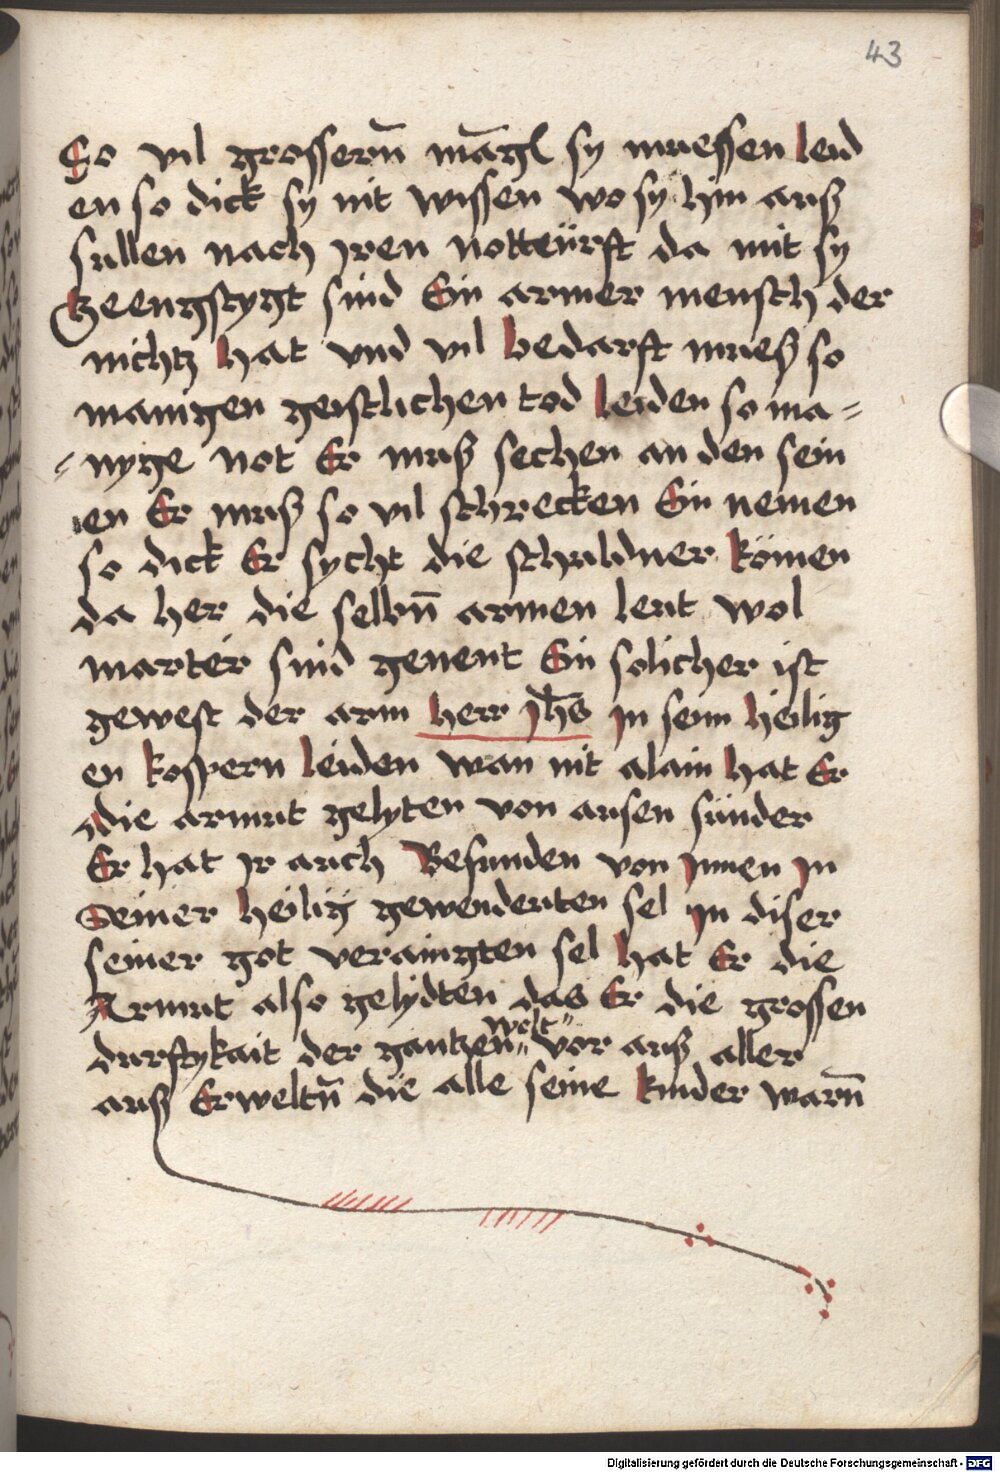 43
So vil grossern̄ māgl sy muessen leid
en so dick sy nit wissen wo sy hin auß
sullen nach jren nottürft da mit sy
geengstygt sind Ein armer mensch der
nichtz hat vnd vil bedarft mueß so
manigen geistlichen tod leiden so ma=
=nyge not Er muß sechen an den sein
en Er muß so vil schrecken Ein nemen
so dick Er sycht die schuldner kömen
da her die selbn̄ armen leut wol
marter sind genent Ein solicher ist
gewest der arm herr jh̄s jn seim heilig
en kospern leiden wan nit alain hat Er
die armut gelyten von ausen sünder
Er hat jr auch Befunden von jnnen jn
Seiner heilig gewendeuten sel jn diser
seiner got veraingten sel hat Er die
Armut also gelydten das Er die grossen
welt"
durftykait der gantzen" vor auß aller
auß Erweltn̄ die alle seine kinder warn̄
Digitalisierung gefördert durch die Deutsche Forschungsgemeinschaft - DFG